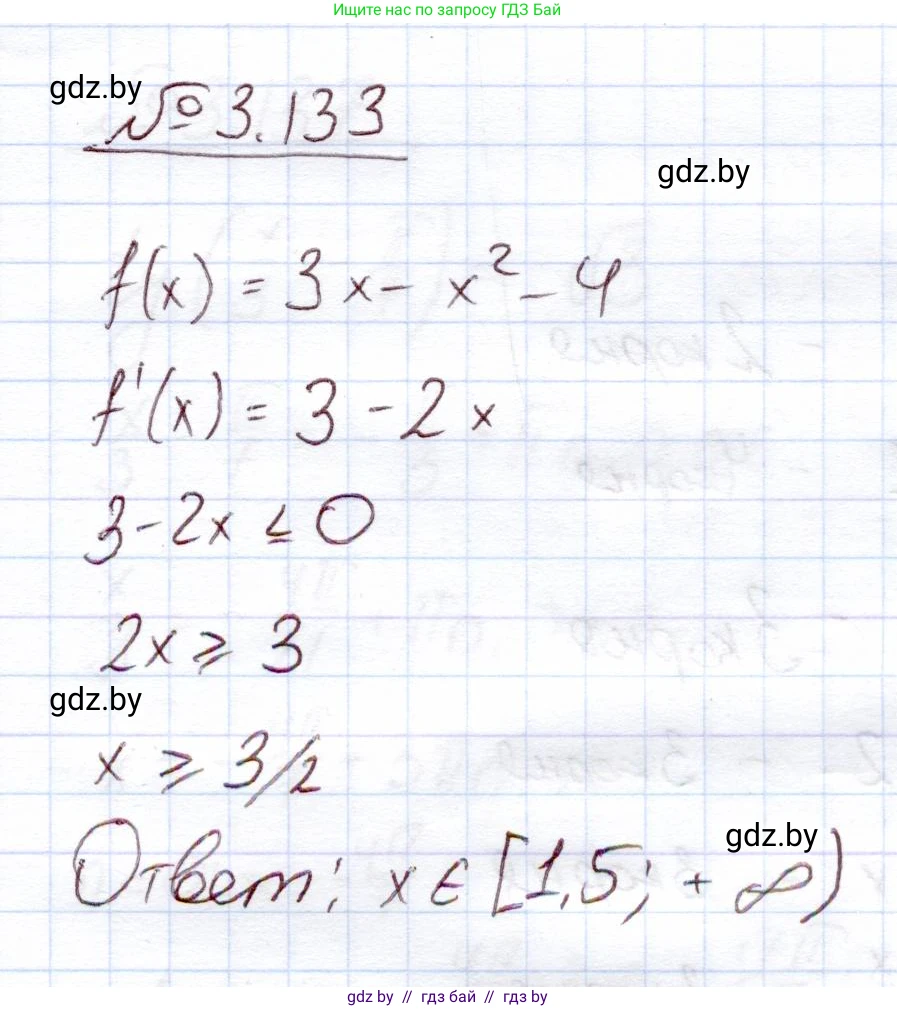 Ищите нас по запросу ГДЗ Бай
gdz.by
№ 3.133
gdz.by
f(x) = 3x - x² - 4
f'(x) = 3 - 2x
3 - 2x ≤ 0
2x ≥ 3
gdz.by
x ≥ 3/2
gdz.by
Ответ: x ∈ [1,5; +∞)
gdz.by // гдз бай // гдз by